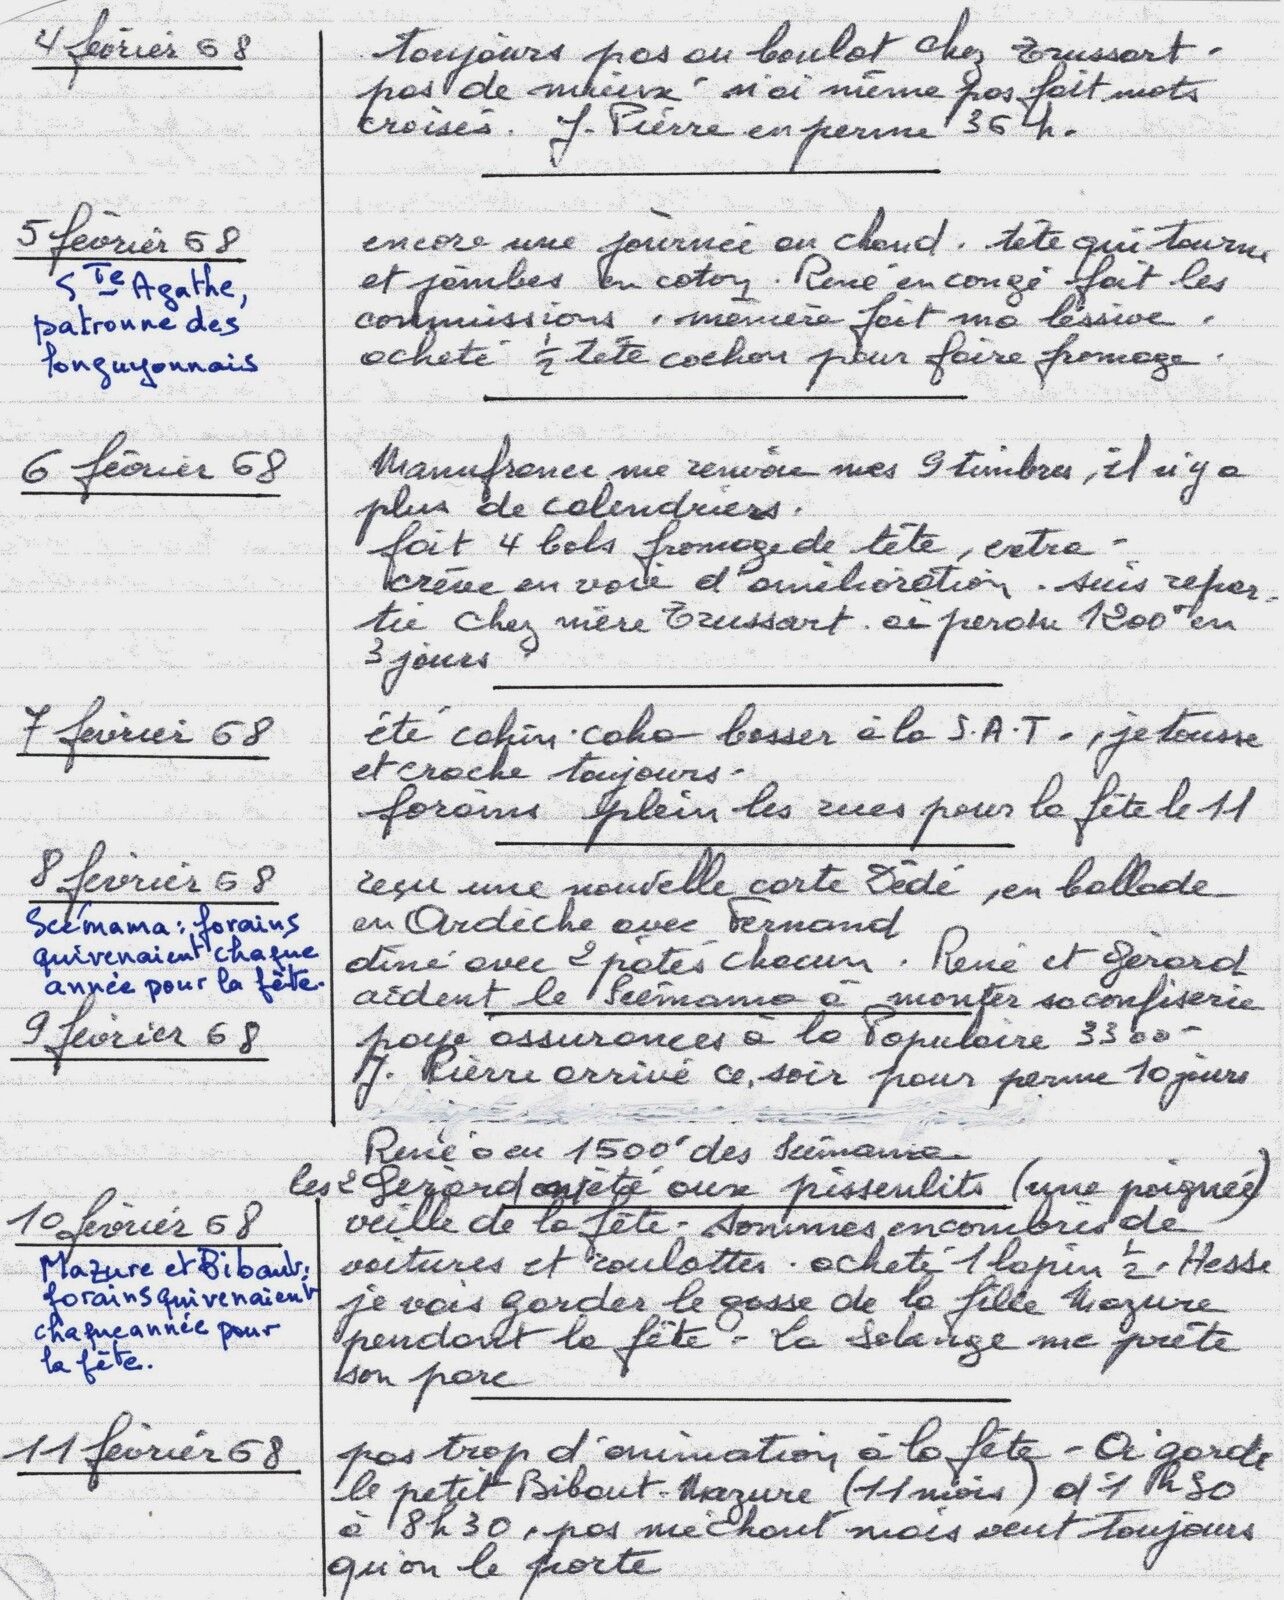 4 février 68
toujours pas au boulot chez Trussart -
pas de mieux n'ai même pas fait mots
croisés. J. Pierre en perme 36 h.
5 février 68
Ste Agathe,
patronne des
longuyonnais
encore une journée au chaud. tête qui tourne
et jambes en coton. René en congé fait les
commissions. mémère fait ma lessive.
acheté 1/2 tête cochon pour faire fromage.
6 février 68
Manufrance me renvoie mes 9 timbres, il n'y a
plus de calendriers.
fait 4 bols fromage de tête, extra -
crève en voie d'amélioration. suis repar-
tie chez mère Trussart. ai perdu 1200 en
3 jours
7 février 68
été cahin-caha bosser à la S.A.T., je tousse
et crache toujours -
forains plein les rues pour la fête le 11
8 février 68
Scémama : forains
qui venaient chaque
année pour la fête.
reçu une nouvelle carte Dédé, en ballade
en Ardèche avec Fernand
dîné avec 2 pâtés chacun. René et Gérard
aident le Scémama à monter sa confiserie
9 février 68
payé assurances à la Populaire 3300 -
J. Pierre arrivé ce soir pour perme 10 jours
René a eu 1500 des Scémama
les 2 Gérard été aux pissenlits (une poignée)
10 février 68
Mazure et Bibaut :
forains qui venaient
chaque année pour
la fête.
veille de la fête - sommes encombrés de
voitures et roulottes. acheté 1 lapin 1/2. Hesse
je vais garder le gosse de la fille Mazure
pendant la fête - La Solange me prête
son parc
11 février 68
pas trop d'animation à la fête - Ai gardé
le petit Bibaut-Mazure (11 mois) d'1 h 30
à 8h30, pas méchant mais veut toujours
qu'on le porte